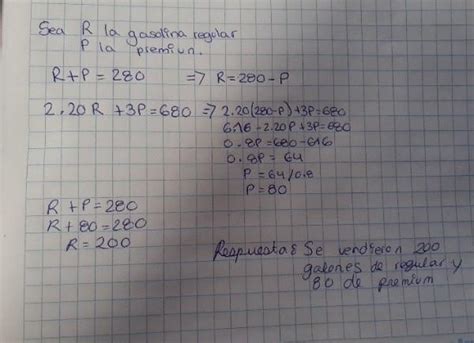 Sea R la gasolina regular
P la premiun.
R+P=280 => R=280-P
2.20R +3P=680 => 2.20(280-P)+3P=680
616-2.20P+3P=680
0.8P=680-616
0.8P=64
P=64/0.8
P=80
R+P=280
R+80=280
R=200
Respuesta: Se vendieron 200
galones de regular y
80 de premium